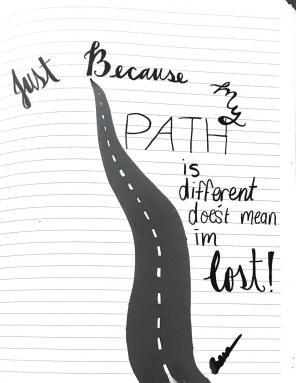 Just Because my
PATH
is
different
does't mean
im
lost!